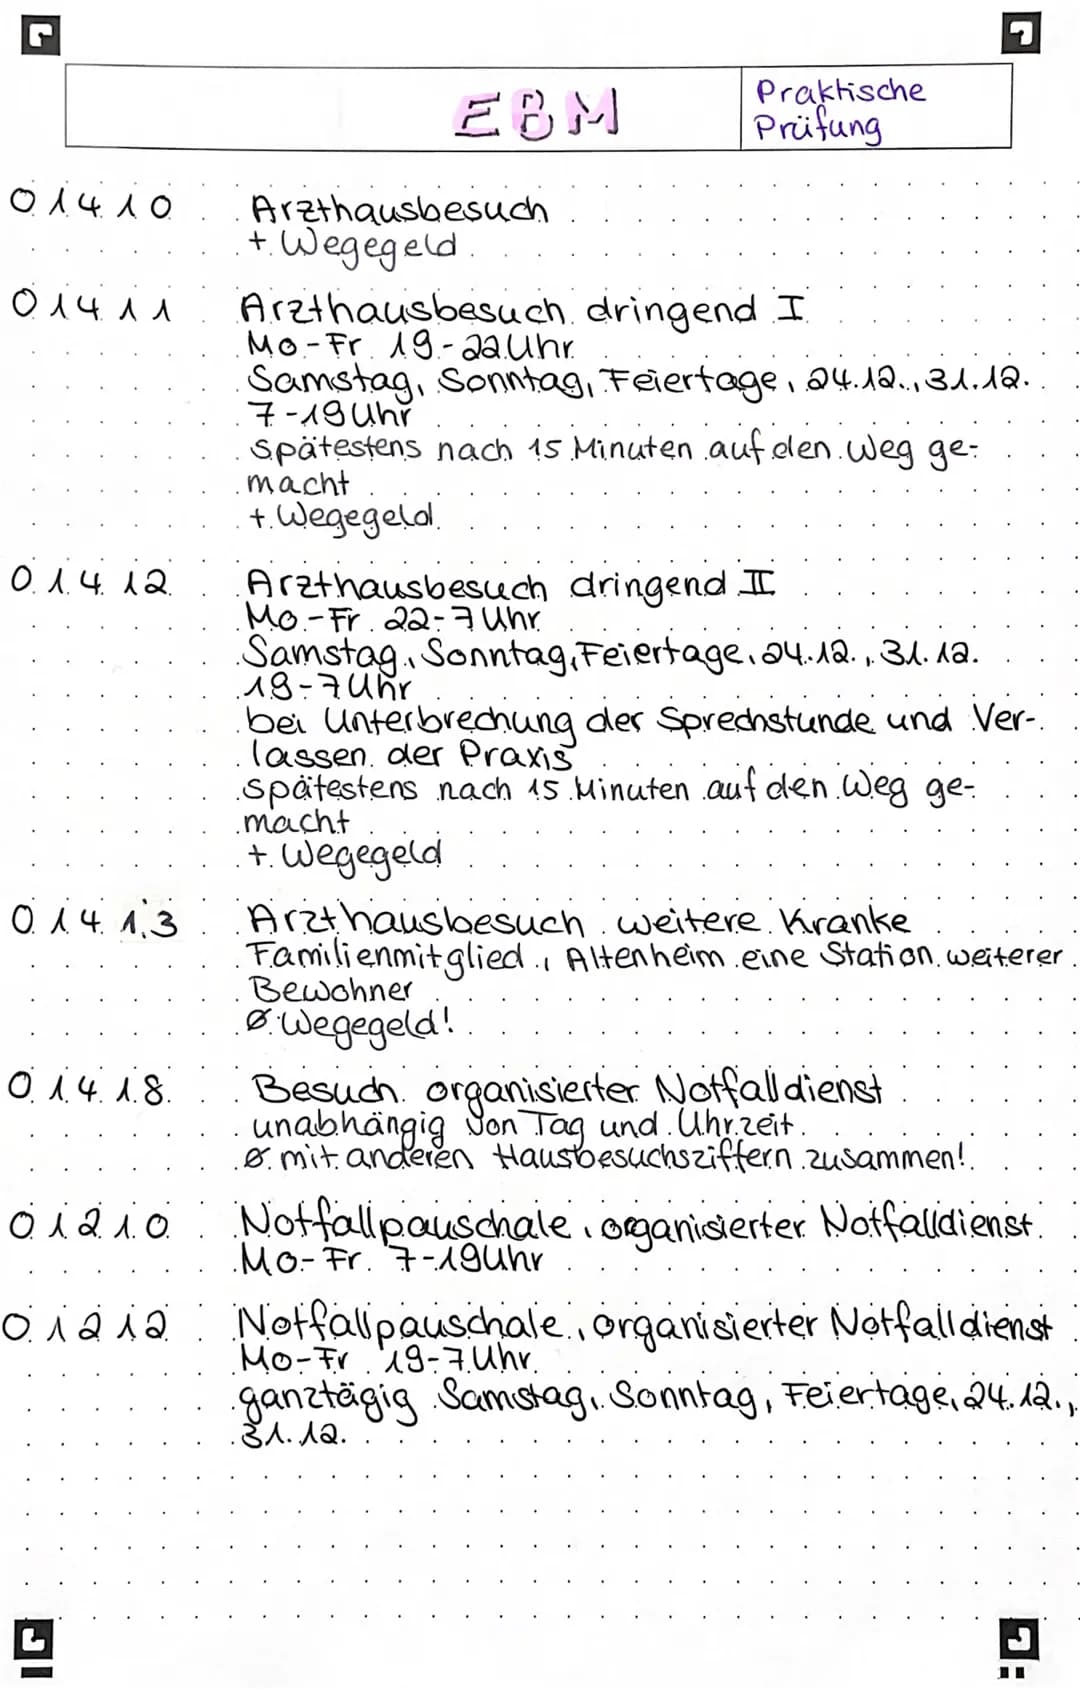 EBM
Praktische
Prüfung
01410 Arzthausbesuch
+ Wegegeld
01411 Arzthausbesuch dringend I
Mo-Fr 19-22Uhr
Samstag, Sonntag, Feiertage, 24.12., 31.12.
7-19Uhr
spätestens nach 15 Minuten auf den Weg ge-
macht
+ Wegegeld
01412 Arzthausbesuch dringend II
Mo.-Fr. 22-7Uhr
Samstag, Sonntag, Feiertage, 24.12., 31.12.
19-7Uhr
bei Unterbrechung der Sprechstunde und Ver-
lassen der Praxis
spätestens nach 15 Minuten auf den Weg ge-
macht
+ Wegegeld
01413 Arzthausbesuch weitere Kranke
Familienmitglied, Altenheim eine Station weiterer
Bewohner
Ø Wegegeld!
01418 Besuch organisierter Notfalldienst
unabhängig von Tag und Uhrzeit
Ø mit anderen Hausbesuchsziffern zusammen!
01210 Notfallpauschale, organisierter Notfalldienst
Mo-Fr. 7-19Uhr
01212 Notfallpauschale, organisierter Notfalldienst
Mo-Fr 19-7Uhr
ganztägig Samstag, Sonntag, Feiertage, 24.12.,
31.12.